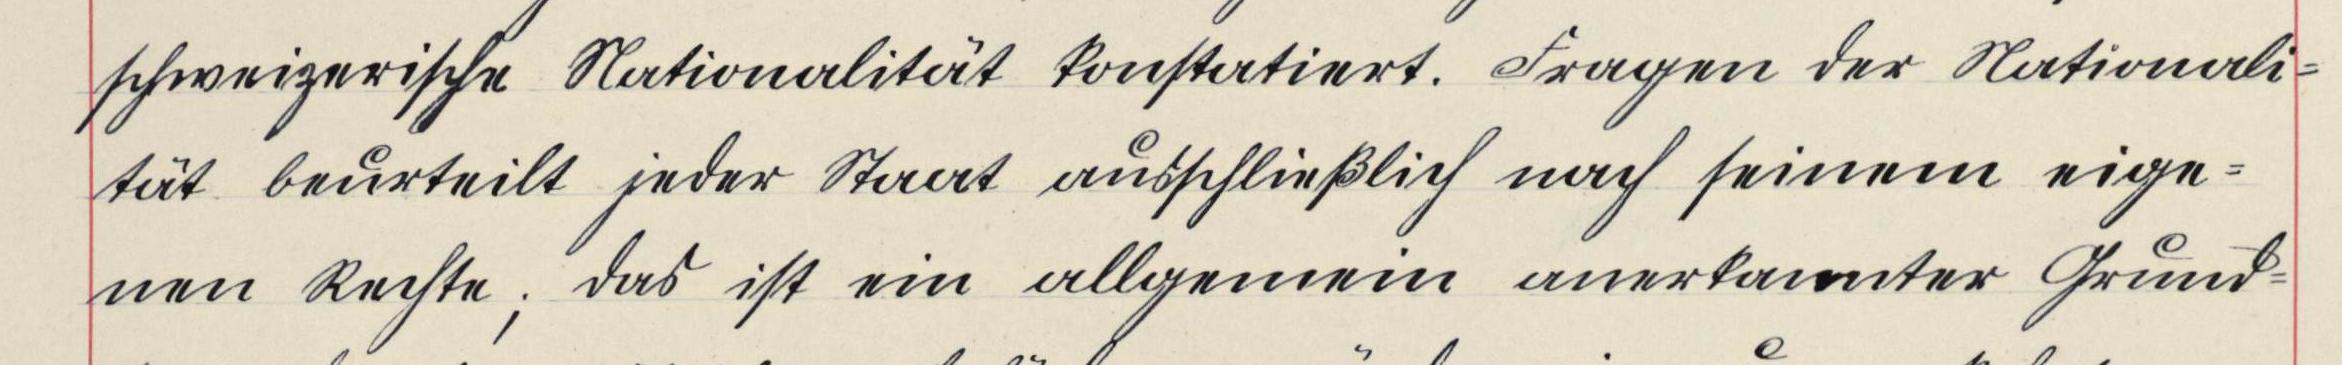 schweizerische Nationalität konstatiert. Fragen der Nationali=
tät beurteilt jeder Staat ausschließlich nach seinem eige=
nen Rechte; das ist ein allgemein anerkannter Grund=